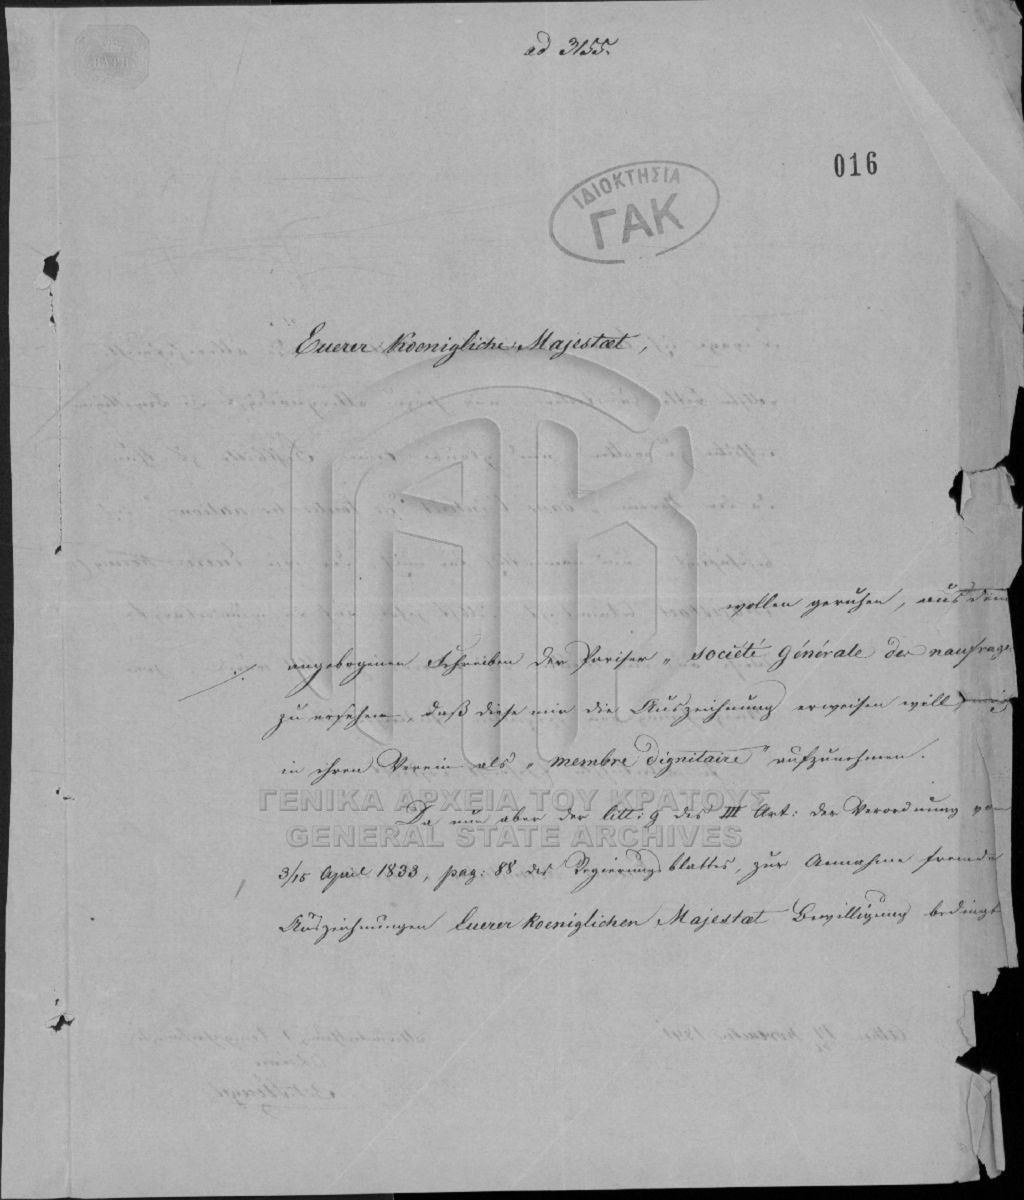 ad 3155.
016
ΙΔΙΟΚΤΗΣΙΑ
ΓΑΚ
Euerer Koenigliche Majestæt,
wollen geruhen, aus dem
angebogenen Schreiben der Pariser „ société générale des naufrages
zu ersehen, daß diese mir die Auszeichnung erweisen will,
in ihren Verein als „ membre dignitaire " aufzunehmen.
ΓΕΝΙΚΑ ΑΡΧΕΙΑ ΤΟΥ ΚΡΑΤΟΥΣ
GENERAL STATE ARCHIVES
Da nun aber der litt: g des III Art: der Verordnung von
3/15 April 1833, pag: 88 des Regierungsblattes, zur Annahme fremder
Auszeichnungen Euerer Koeniglichen Majestæt Bewilligung bedingt